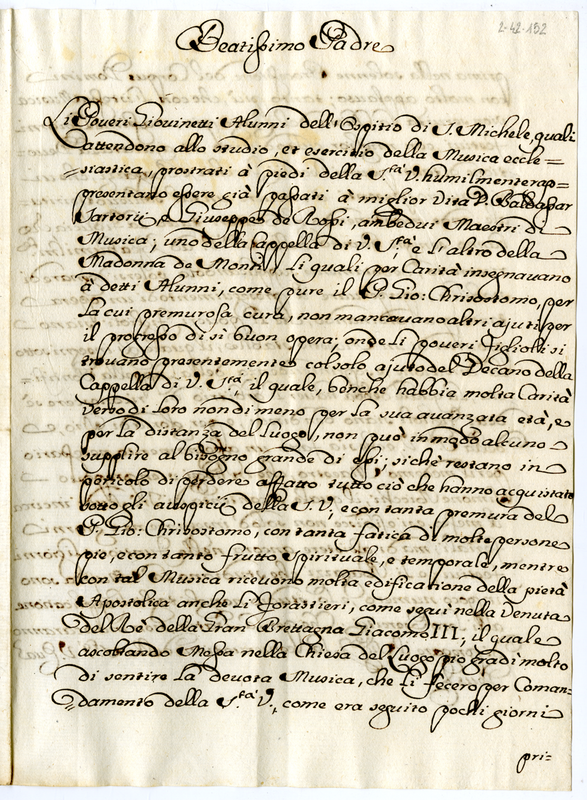 2-42-152
Beatissimo Padre
Li Poveri Giovinetti Alunni dell'Ospitio di S. Michele, quali
attendono allo studio, et esercitio della Musica eccle=
=siastica, prostrati à piedi della S.tà V. humilmente rap=
presentano essere già passati à miglior vita D. Baldassar
Sartorij, e Giuseppe de Rossi, ambedui Maestri di
Musica; uno della Cappella di V. S.tà, e l'altro della
Madonna de Monti, Li quali per Carità insegnavano
à detti Alunni, come pure il P. Gio: Chrisostomo, per
la cui premurosa cura, non mancavano altri ajuti per
il progresso di sì buon opera; onde li poveri figlioli si
trovano presentemente col solo ajuto del Decano della
Cappella di V. S.tà, il quale, benche habbia molta Carità
verso di loro nondimeno per la sua avanzata età, e
per la distanza del Luogo, non può in modo alcuno
supplire al bisogno grande di essi; siche restano in
pericolo di perdere affatto tutto ciò che hanno acquistato
sotto gli auspicij della S. V., e con tanta premura del
P. Gio: Chrisostomo, con tanta fatica di molte persone
pie, e con tanto frutto spirituale, e temporale, mentre
con tal Musica ricevono molta edificatione della pietà
Apostolica anche li forastieri, come seguì nella Venuta
del Rè della Gran Brettagna Giacomo III; il quale
ascoltando Messa nella Chiesa del Luogo pio gradì molto
di sentire la devota Musica, che li fecero per Coman=
=damento della S.tà V., come era seguito pochi giorni
pri=